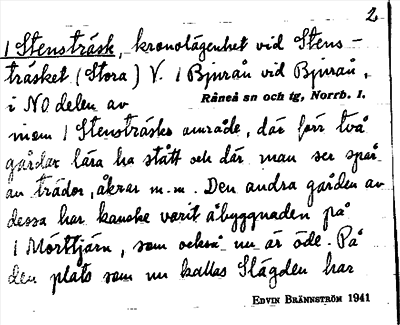 2
1 Stensträsk, kronolägenhet vid Stens-
träsket (Stora) V. 1 Bjurån vid Bjurån,
i NO delen av Råneå sn och tg, Norrb. l.
inom 1 Stensträsks område, där förr två
gårdar lära ha stått och där man ser spår
av trädor, åkrar m.m. Den andra gården av
dessa har kanske varit åbyggnaden på
1 Mörttjärn, som också nu är öde. På
den plats som nu kallas Slägden har
EDVIN BRÄNNSTRÖM 1941